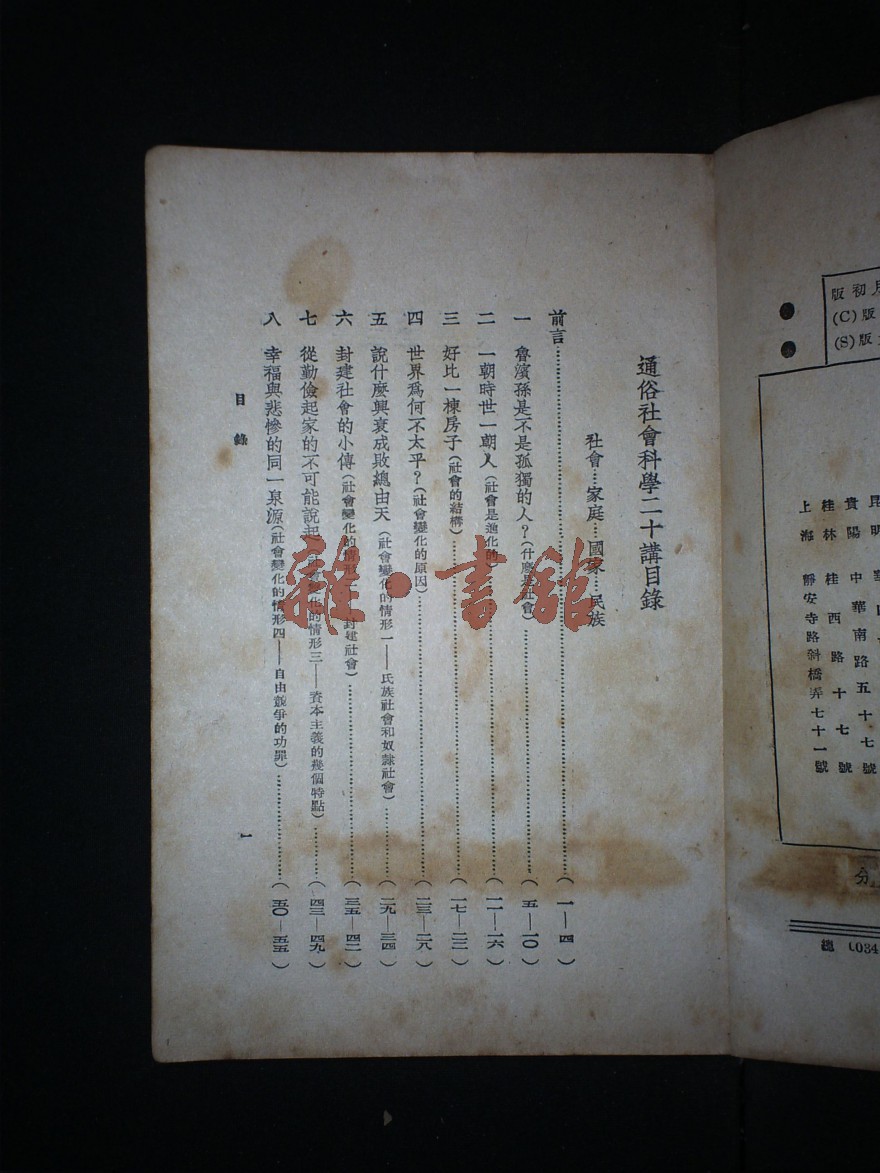 通俗社會科學二十講目錄
社會…家庭…國家…民族
前言……(一—四)
一 魯濱孫是不是孤獨的人？(什麼是社會)……(五—一〇)
二 一朝時世一朝人(社會是進化的)……(一一—一六)
三 好比一棟房子(社會的結構)……(一七—二二)
四 世界爲何不太平？(社會變化的原因)……(二三—二八)
五 說什麼興衰成敗總由天(社會變化的情形一——氏族社會和奴隸社會)……(二九—三四)
六 封建社會的小傳(社會變化的情形二——封建社會)……(三五—四二)
七 從勤儉起家的不可能說起(社會變化的情形三——資本主義的幾個特點)……(四三—四九)
八 幸福與悲慘的同一泉源(社會變化的情形四——自由競爭的功罪)……(五〇—五五)
目錄
一
雜·書館
月初版
版(C)
版(S)
昆明
貴陽 中華南路五十七號
桂林 桂西路十七號
上海 靜安寺路斜橋弄七十一號
分
總
034